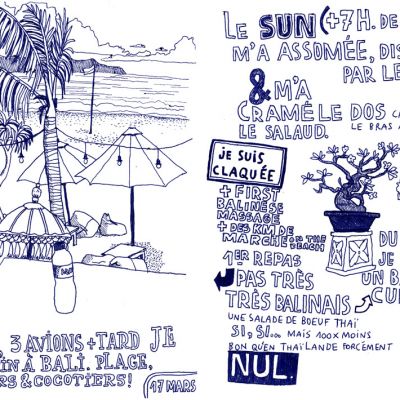 , 3 AVIONS + TARD JE
IN À BALI. PLAGE,
RS & COCOTIERS!
17 MARS
LE SUN (+7H. DE
M'A ASSOMÉE, DIS
PAR LE
& M'A
CRAMÉ LE DOS
LE SALAUD.
LE BRAS
je suis
CLAQUÉE
+ FIRST
BALINESE
MASSAGE
+ DES KM DE
MARCHE ON THE
BEACH
1ER REPAS
PAS TRÈS
TRÈS BALINAIS
UNE SALADE DE BOEUF THAÏ
SI, SI... MAIS 100X MOINS
BON QU'EN THAÏLANDE FORCÉMENT
NUL.
DU
JE
UN BA
CU